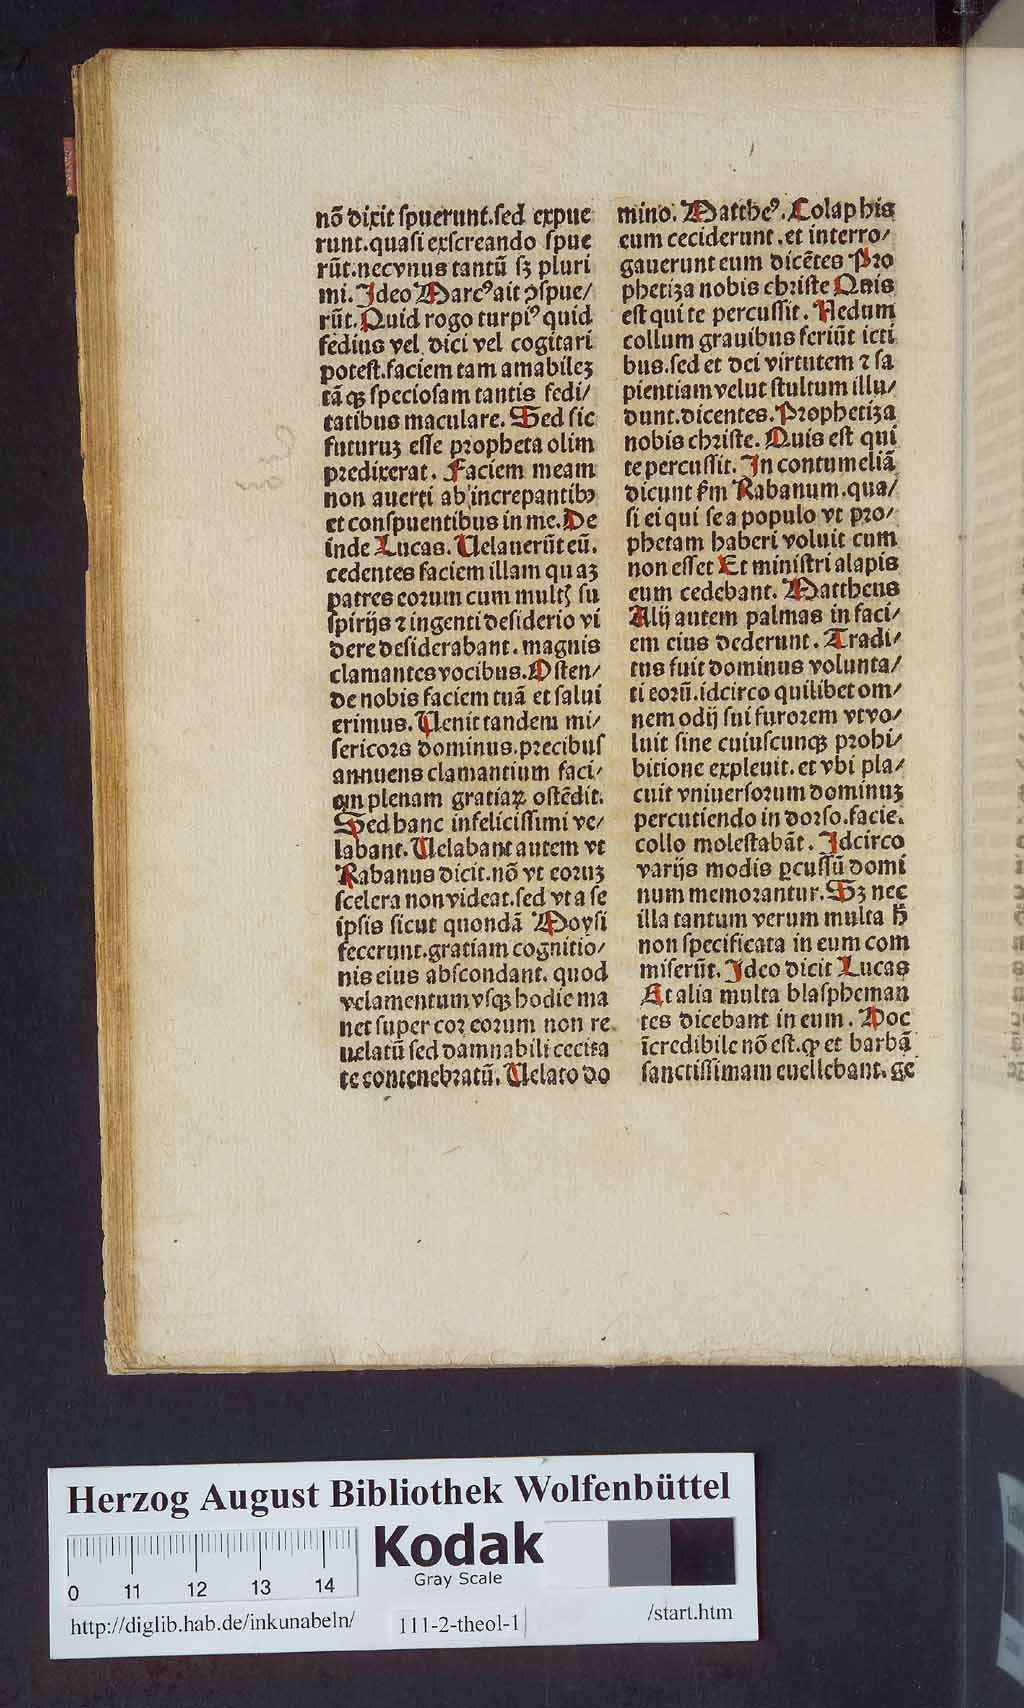 nō dixit ſpuerunt.ſed expue
runt.quaſi exſcreando ſpue
rūt.necvnus tantū ſꝫ pluri
mi. Ideo Marcꝰ ait ↄſpue/
rūt. Quid rogo turpiꝰ quid
fedius vel dici vel cogitari
poteſt.faciem tam amabilez
tā qꝫ ſpecioſam tantis fedi/
tatibus maculare. Sed ſic
futuruꝫ eſſe propheta olim
predixerat. Faciem meam
non auerti ab increpantibꝰ
et conſpuentibus in me. De
inde Lucas. Uelauerūt eū.
cedentes faciem illam quaꝫ
patres eorum cum multꝭ ſu
ſpirijs ⁊ ingenti deſiderio vi
dere deſiderabant. magnis
clamantes vocibus. Oſten/
de nobis faciem tuā et ſalui
erimus. Uenit tandem mi/
ſericors dominus.precibuſ
annuens clamantium faci/
em plenam gratiaꝝ oſtēdit.
Sed hanc infeliciſſimi ve/
labant. Uelabant autem vt
Rabanus dicit.nō vt eoruꝫ
ſcelera non videat.ſed vt a ſe
ipſis ſicut quondā Moyſi
fecerunt.gratiam cognitio/
nis eius abſcondant. quod
velamentum vſqꝫ hodie ma
net ſuper cor eorum non re
uelatū ſed damnabili cecita
te contenebratū. Uelato do
mino. Mattheꝰ. Colaphis
eum ceciderunt. et interro/
gauerunt eum dicētes Pro
phetiza nobis chriſte Quis
eſt qui te percuſſit. Nedum
collum grauibus feriūt icti
bus.ſed et dei virtutem ⁊ ſa
pientiam velut ſtultum illu/
dunt.dicentes. Prophetiza
nobis chriſte. Quis eſt qui
te percuſſit. In contumeliā
dicunt ẜm Rabanum.qua/
ſi ei qui ſe a populo vt pro/
phetam haberi voluit cum
non eſſet Et miniſtri alapis
eum cedebant. Mattheus
Alij autem palmas in faci/
em eius dederunt. Tradi/
tus fuit dominus volunta/
ti eorū.idcirco quilibet om/
nem odij ſui furorem vt vo/
luit ſine cuiuſcunqꝫ prohi/
bitione expleuit. et vbi pla/
cuit vniuerſorum dominuꝫ
percutiendo in dorſo.facie.
collo moleſtabāt. Idcirco
varijs modis ꝑcuſſū domi
num memorantur. Sꝫ nec
illa tantum verum multa h̄
non ſpecificata in eum com
miſerūt. Ideo dicit Lucas
Et alia multa blaſpheman
tes dicebant in eum. Hoc
īcredibile nō eſt.ꝙ et barbā
ſanctiſſimam euellebant. ge
Herzog August Bibliothek Wolfenbüttel
Kodak
Gray Scale
0 11 12 13 14
http://diglib.hab.de/inkunabeln/
111-2-theol-1
/start.htm